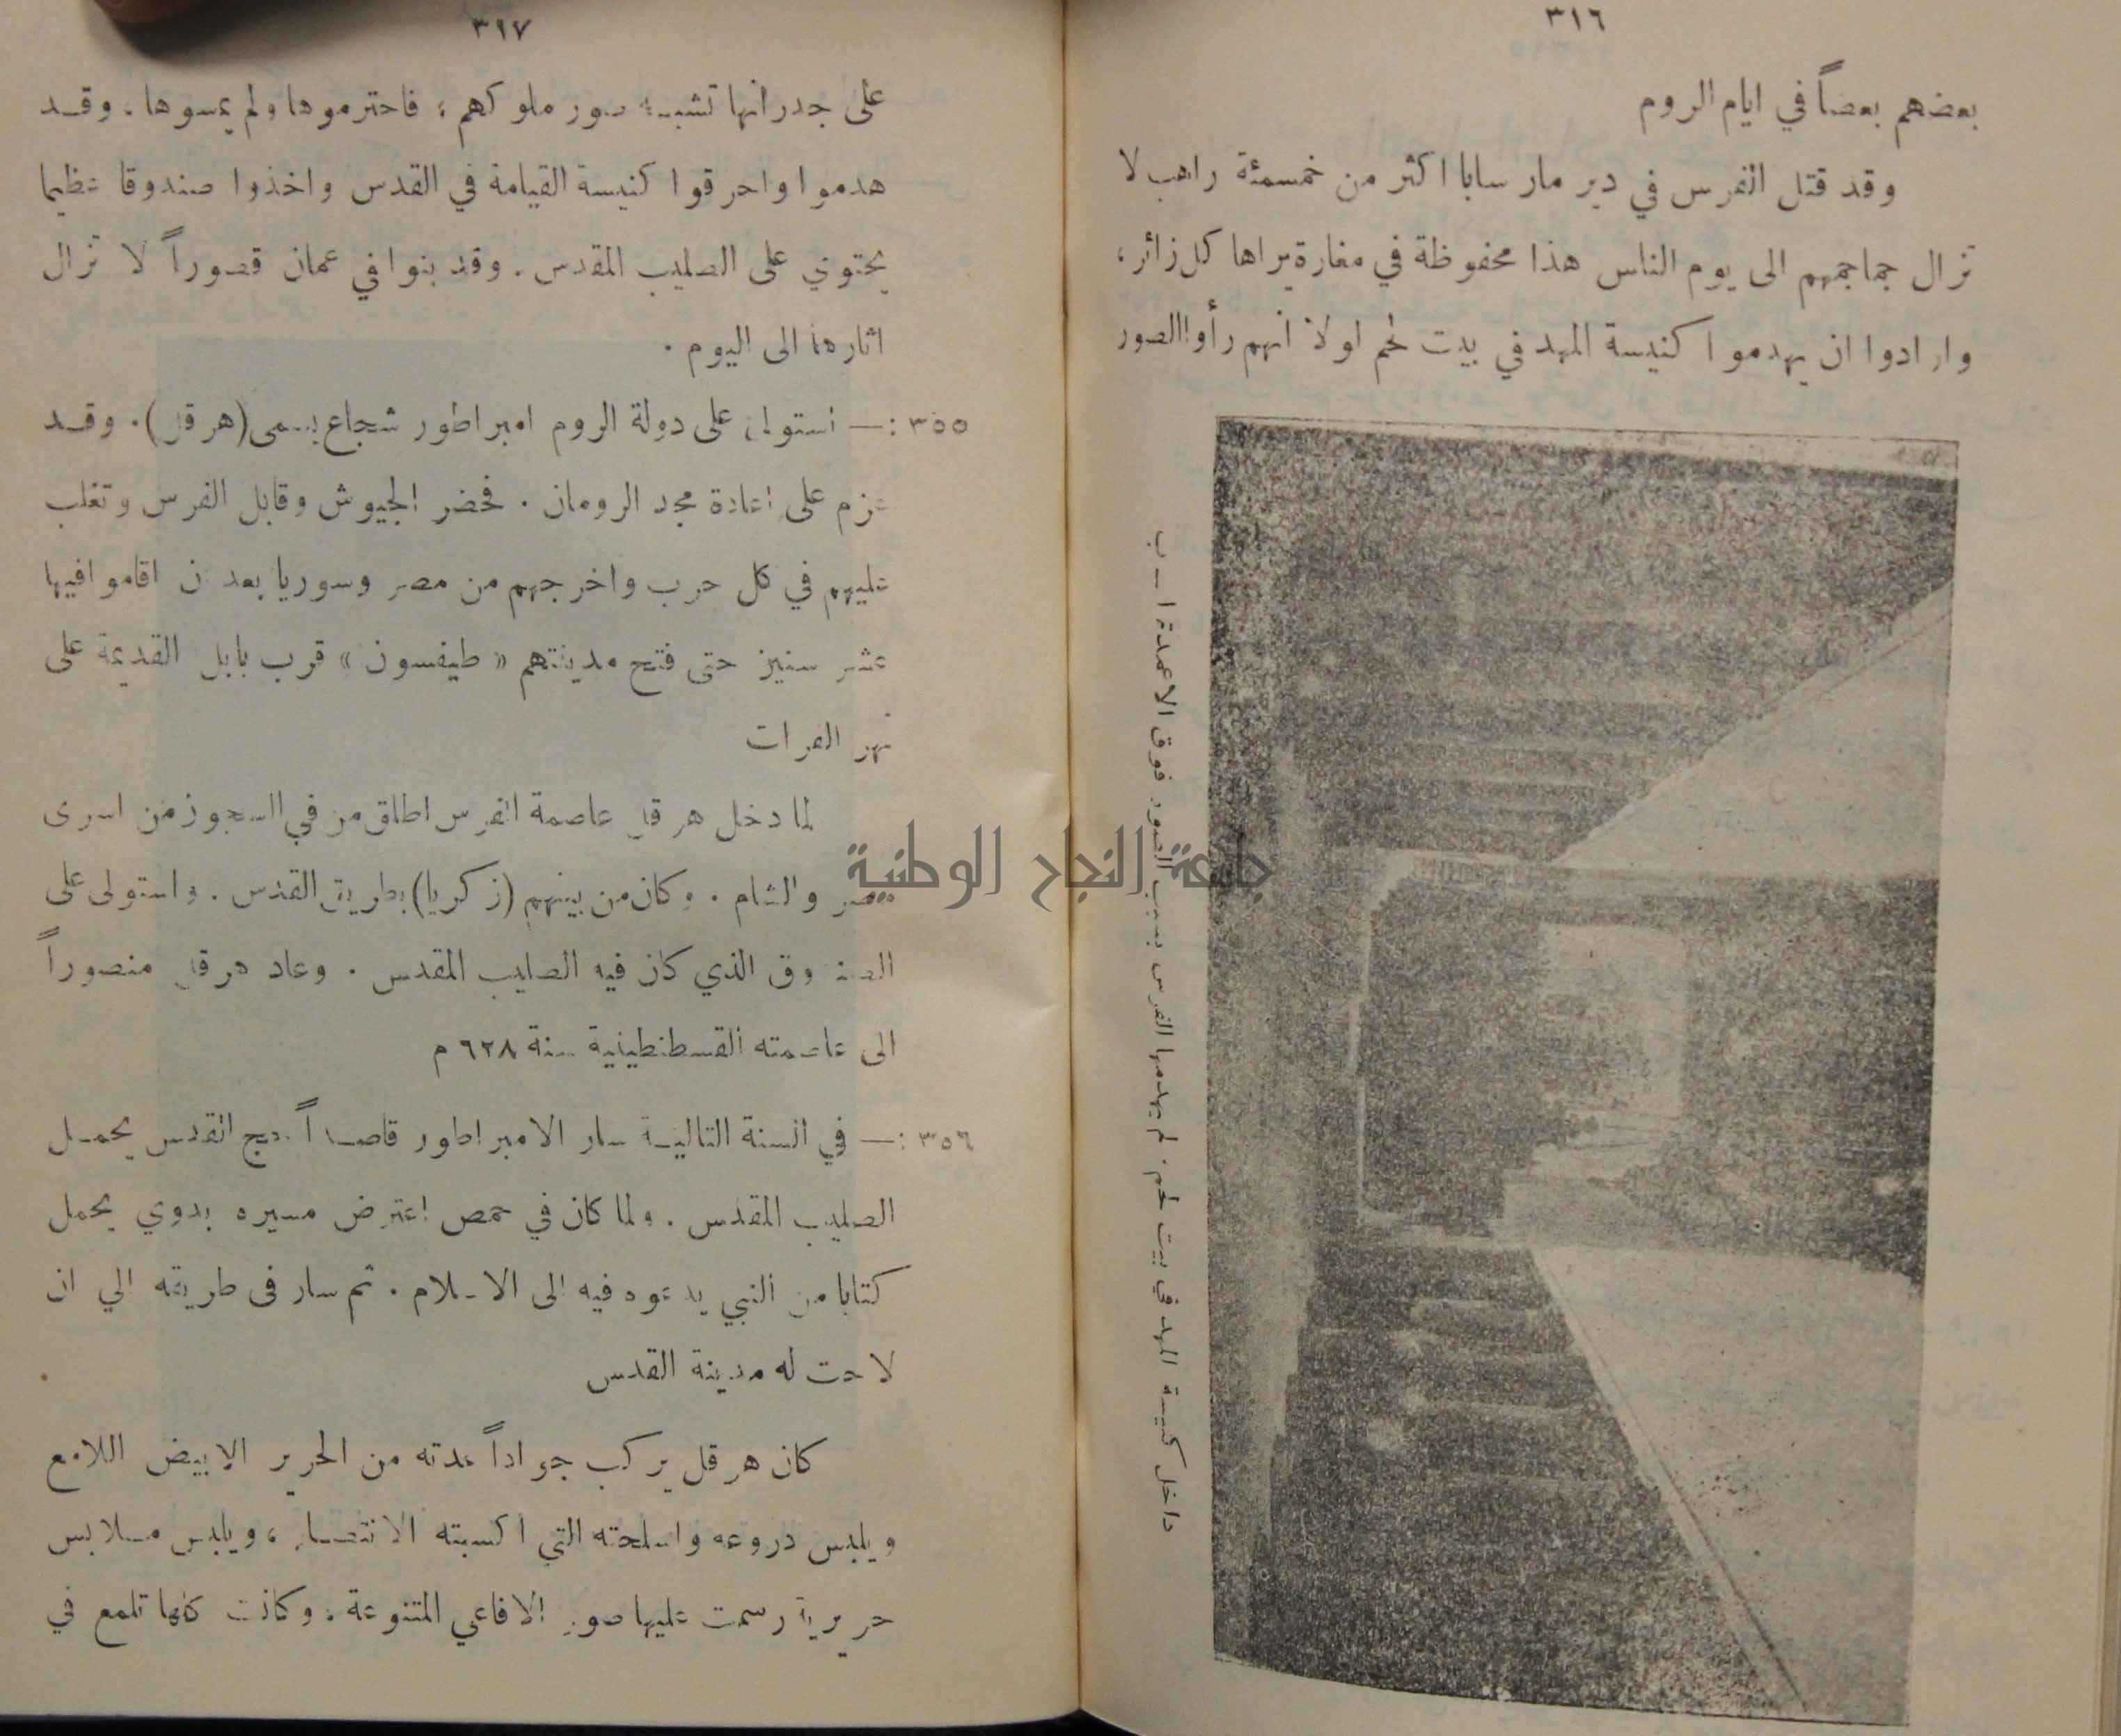 ٣١٦
بعضهم بعضاً في ايام الروم
وقد قتل الفرس في دير مار سابا اكثر من خمسمئة راهب لا
تزال جماجمهم الى يوم الناس هذا محفوظة في مغارة يراها كل زائر،
وارادوا ان يهدموا كنيسة المهد في بيت لحم اولا انهم رأوا الصور
داخل كنيسة المهد في بيت لحم. لم يهدمها الفرس بسبب الصور فوق الاعمدة ا ـ ب
٣١٧
على جدرانها تشبه صور ملوكهم، فاحترموها ولم يمسوها. وقد
هدموا واحرقوا كنيسة القيامة في القدس واخذوا صندوقا عظيما
يحتوي على الصليب المقدس. وقد بنوا في عمان قصوراً لا تزال
اثارها الى اليوم.
٣٥٥ :— استولى على دولة الروم امبراطور شجاع يسمى (هرقل). وقد
عزم على اعادة مجد الرومان. فحضر الجيوش وقابل الفرس وتغلب
عليهم في كل حرب واخرجهم من مصر وسوريا بعد ان اقاموا فيها
عشر سنين حتى فتح مدينتهم «طيفسون» قرب بابل القديمة على
نهر الفرات
لما دخل هرقل عاصمة الفرس اطلق من في السجون من اسرى
مصر والشام. وكان من بينهم (زكريا) بطريق القدس. واستولى على
الصندوق الذي كان فيه الصليب المقدس. وعاد هرقل منصوراً
الى عاصمته القسطنطينية سنة ٦٢٨ م
٣٥٦ :— في السنة التالية سار الامبراطور قاصداً حج القدس يحمل
الصليب المقدس. ولما كان في حمص اعترض مسيره بدوي يحمل
كتابا من النبي يدعوه فيه الى الاسلام. ثم سار في طريقه الي ان
لاحت له مدينة القدس
كان هرقل يركب جواداً عدته من الحرير الابيض اللامع
ويلبس دروعه واسلحته التي اكسبته الانتصار، ويلبس ملابس
حريرية رسمت عليها صور الافاعي المتنوعة، وكانت كلها تلمع في
جامعة النجاح الوطنية